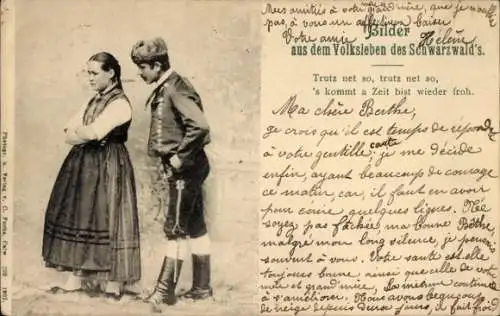 Mes amitiés à votre grand'mère, que je n'oublie
pas, à vous un affectueux baiser
Votre amie Hélène
Bilder
aus dem Volksleben des Schwarzwald's.
Trutz net so, trutz net so,
's kommt a Zeit bist wieder froh.
Ma chère Berthe,
Je crois qu'il est temps de répondre
à votre gentille carte, je me décide
enfin, ayant beaucoup de courage
ce matin, car, il faut en avoir
pour écrire quelques lignes. Ne
soyez pas fâchée ma bonne Berthe,
malgré mon long silence, je pensais
souvent à vous. Votre santé est-elle
toujours bonne, ainsi que celle de votre
mère et grand'mère, la mienne continue
à s'améliorer. Nous avons beaucoup
de neige depuis deux jours, il fait froid
Photogr. u. Verlag v. C.